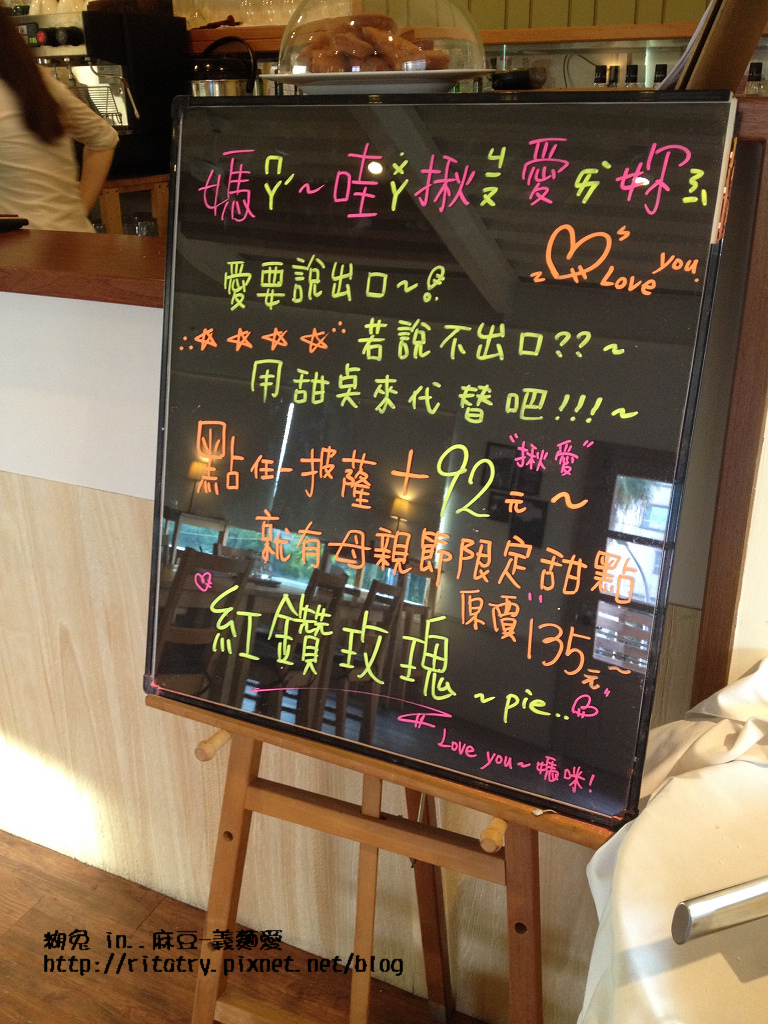 媽ㄇㄚˊ~哇ㄨㄚ揪ㄐㄧㄡ愛ㄞˋ妳ㄋㄧˇ
Love you.
愛要說出口~
若說不出口??~
用甜桌來代替吧!!!~
"揪愛"
點任一披薩+92元~
就有母親節限定甜點
原價135元~
紅鑽玫瑰~pie..
Love you~媽咪!
糊兔 in..麻豆-義麵愛
http://ritatry.pixnet.net/blog